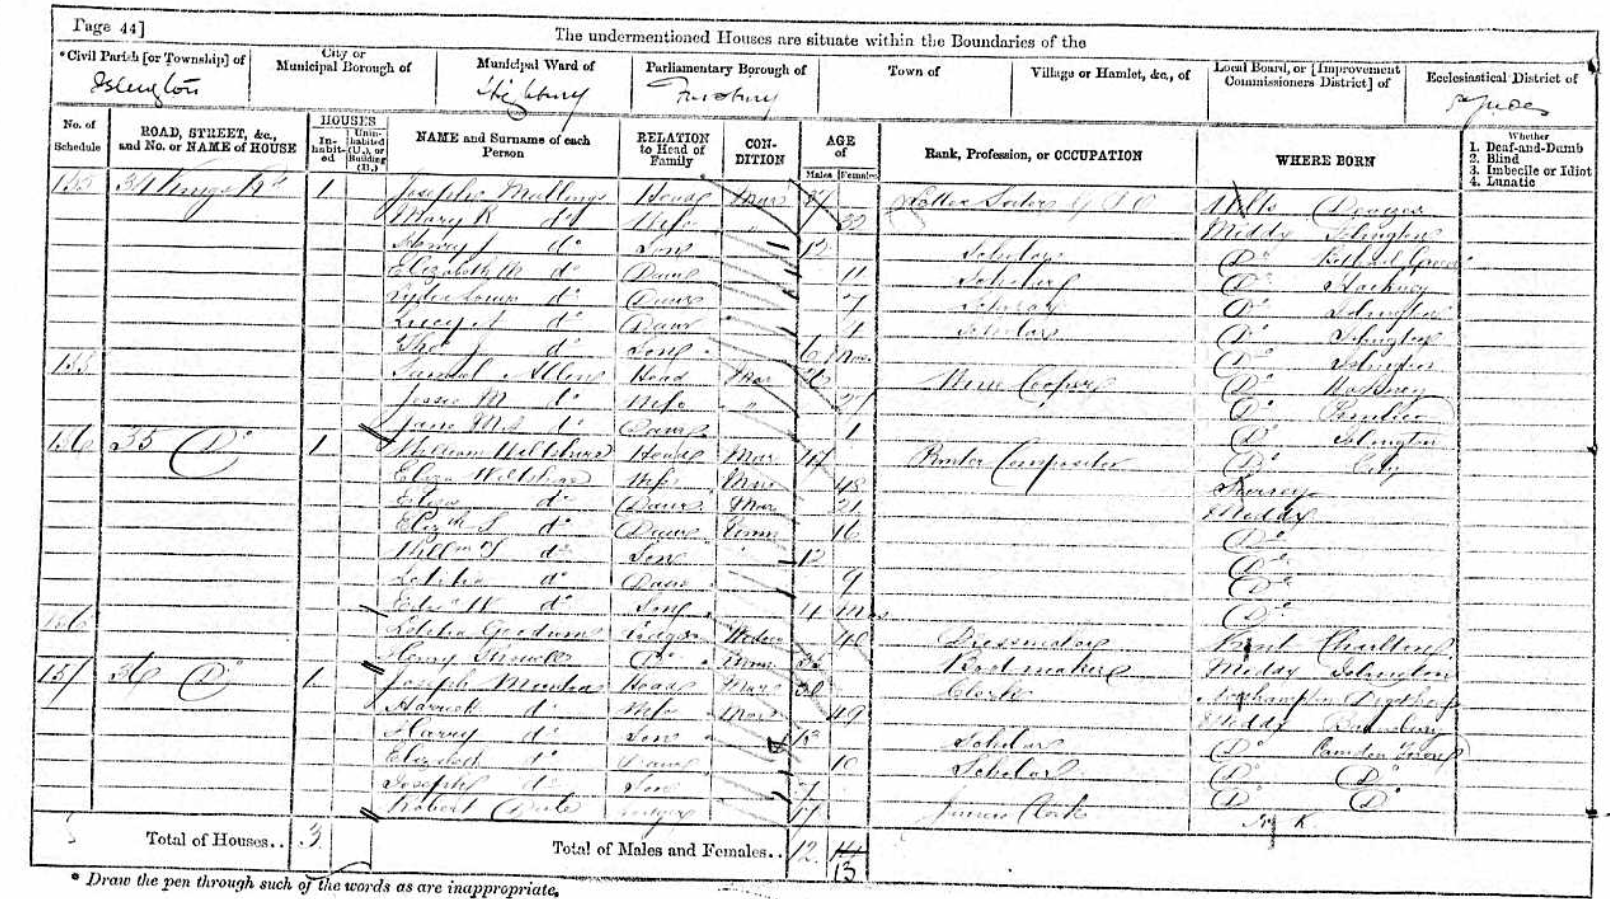 Page 44]
The undermentioned Houses are situate within the Boundaries of the
*Civil Parish [or Township] of
City or Municipal Borough of
Municipal Ward of
Parliamentary Borough of
Town of
Village or Hamlet, &c., of
Local Board, or [Improvement Commissioners District] of
Ecclesiastical District of
Islington
Highbury
Finsbury
St Judes
No. of Schedule
ROAD, STREET, &c., and No. or NAME of HOUSE
HOUSES
In-habit-ed
Unin-habited (U.), or Building (B.)
NAME and Surname of each Person
RELATION to Head of Family
CON-DITION
AGE of
Males Females
Rank, Profession, or OCCUPATION
WHERE BORN
Whether
1. Deaf-and-Dumb
2. Blind
3. Imbecile or Idiot
4. Lunatic
34 Kings Rd 1 Joseph Mullings Head Mar Letter Sorter G P O Wilts Devizes
Mary K do Wife " Middx Islington
Henry J do Son 12 Scholar Do Bethnal Green
Elizabeth M do Daur 11 Scholar Do Hackney
Lydia Louisa do Daur 7 Scholar Do Islington
Lucy A do Daur 4 Scholar Do Islington
Thos J do Son 6 Mos Do Islington
Samuel Allen Head Mar 26 Wine Cooper Do Hackney
Jessie M do Wife " 27 Do Pimlico
Jane do Daur 1 Do Islington
156 35 Do 1 William Wiltshire Head Mar 47 Printer Compositor Do City
Eliza Wiltshire Wife Mar 48 Surrey
do Daur 21 Middx
Elizth S do Daur Unm 16 Do
Willm do Son 12 Do
Letitia do Daur 9 Do
Edwd W do Son 4 Mos Do
156 Letitia Goodwin Lodger Widow 48 Dressmaker Kent Charlton
Henry Do Unm Bootmaker Middx Islington
157 36 Do 1 Joseph Head Mar Clerk Northampton
Harriett do Wife Mar 49 Middx Barnsbury
Harry do Son 13 Scholar Do Camden Town
Elizabeth do Daur 10 Scholar Do Do
Joseph do Son 7 Do Do
Robert Lodger 17 Junior Clerk N. K.
Total of Houses.. 3
Total of Males and Females.. 12 14 13
* Draw the pen through such of the words as are inappropriate.